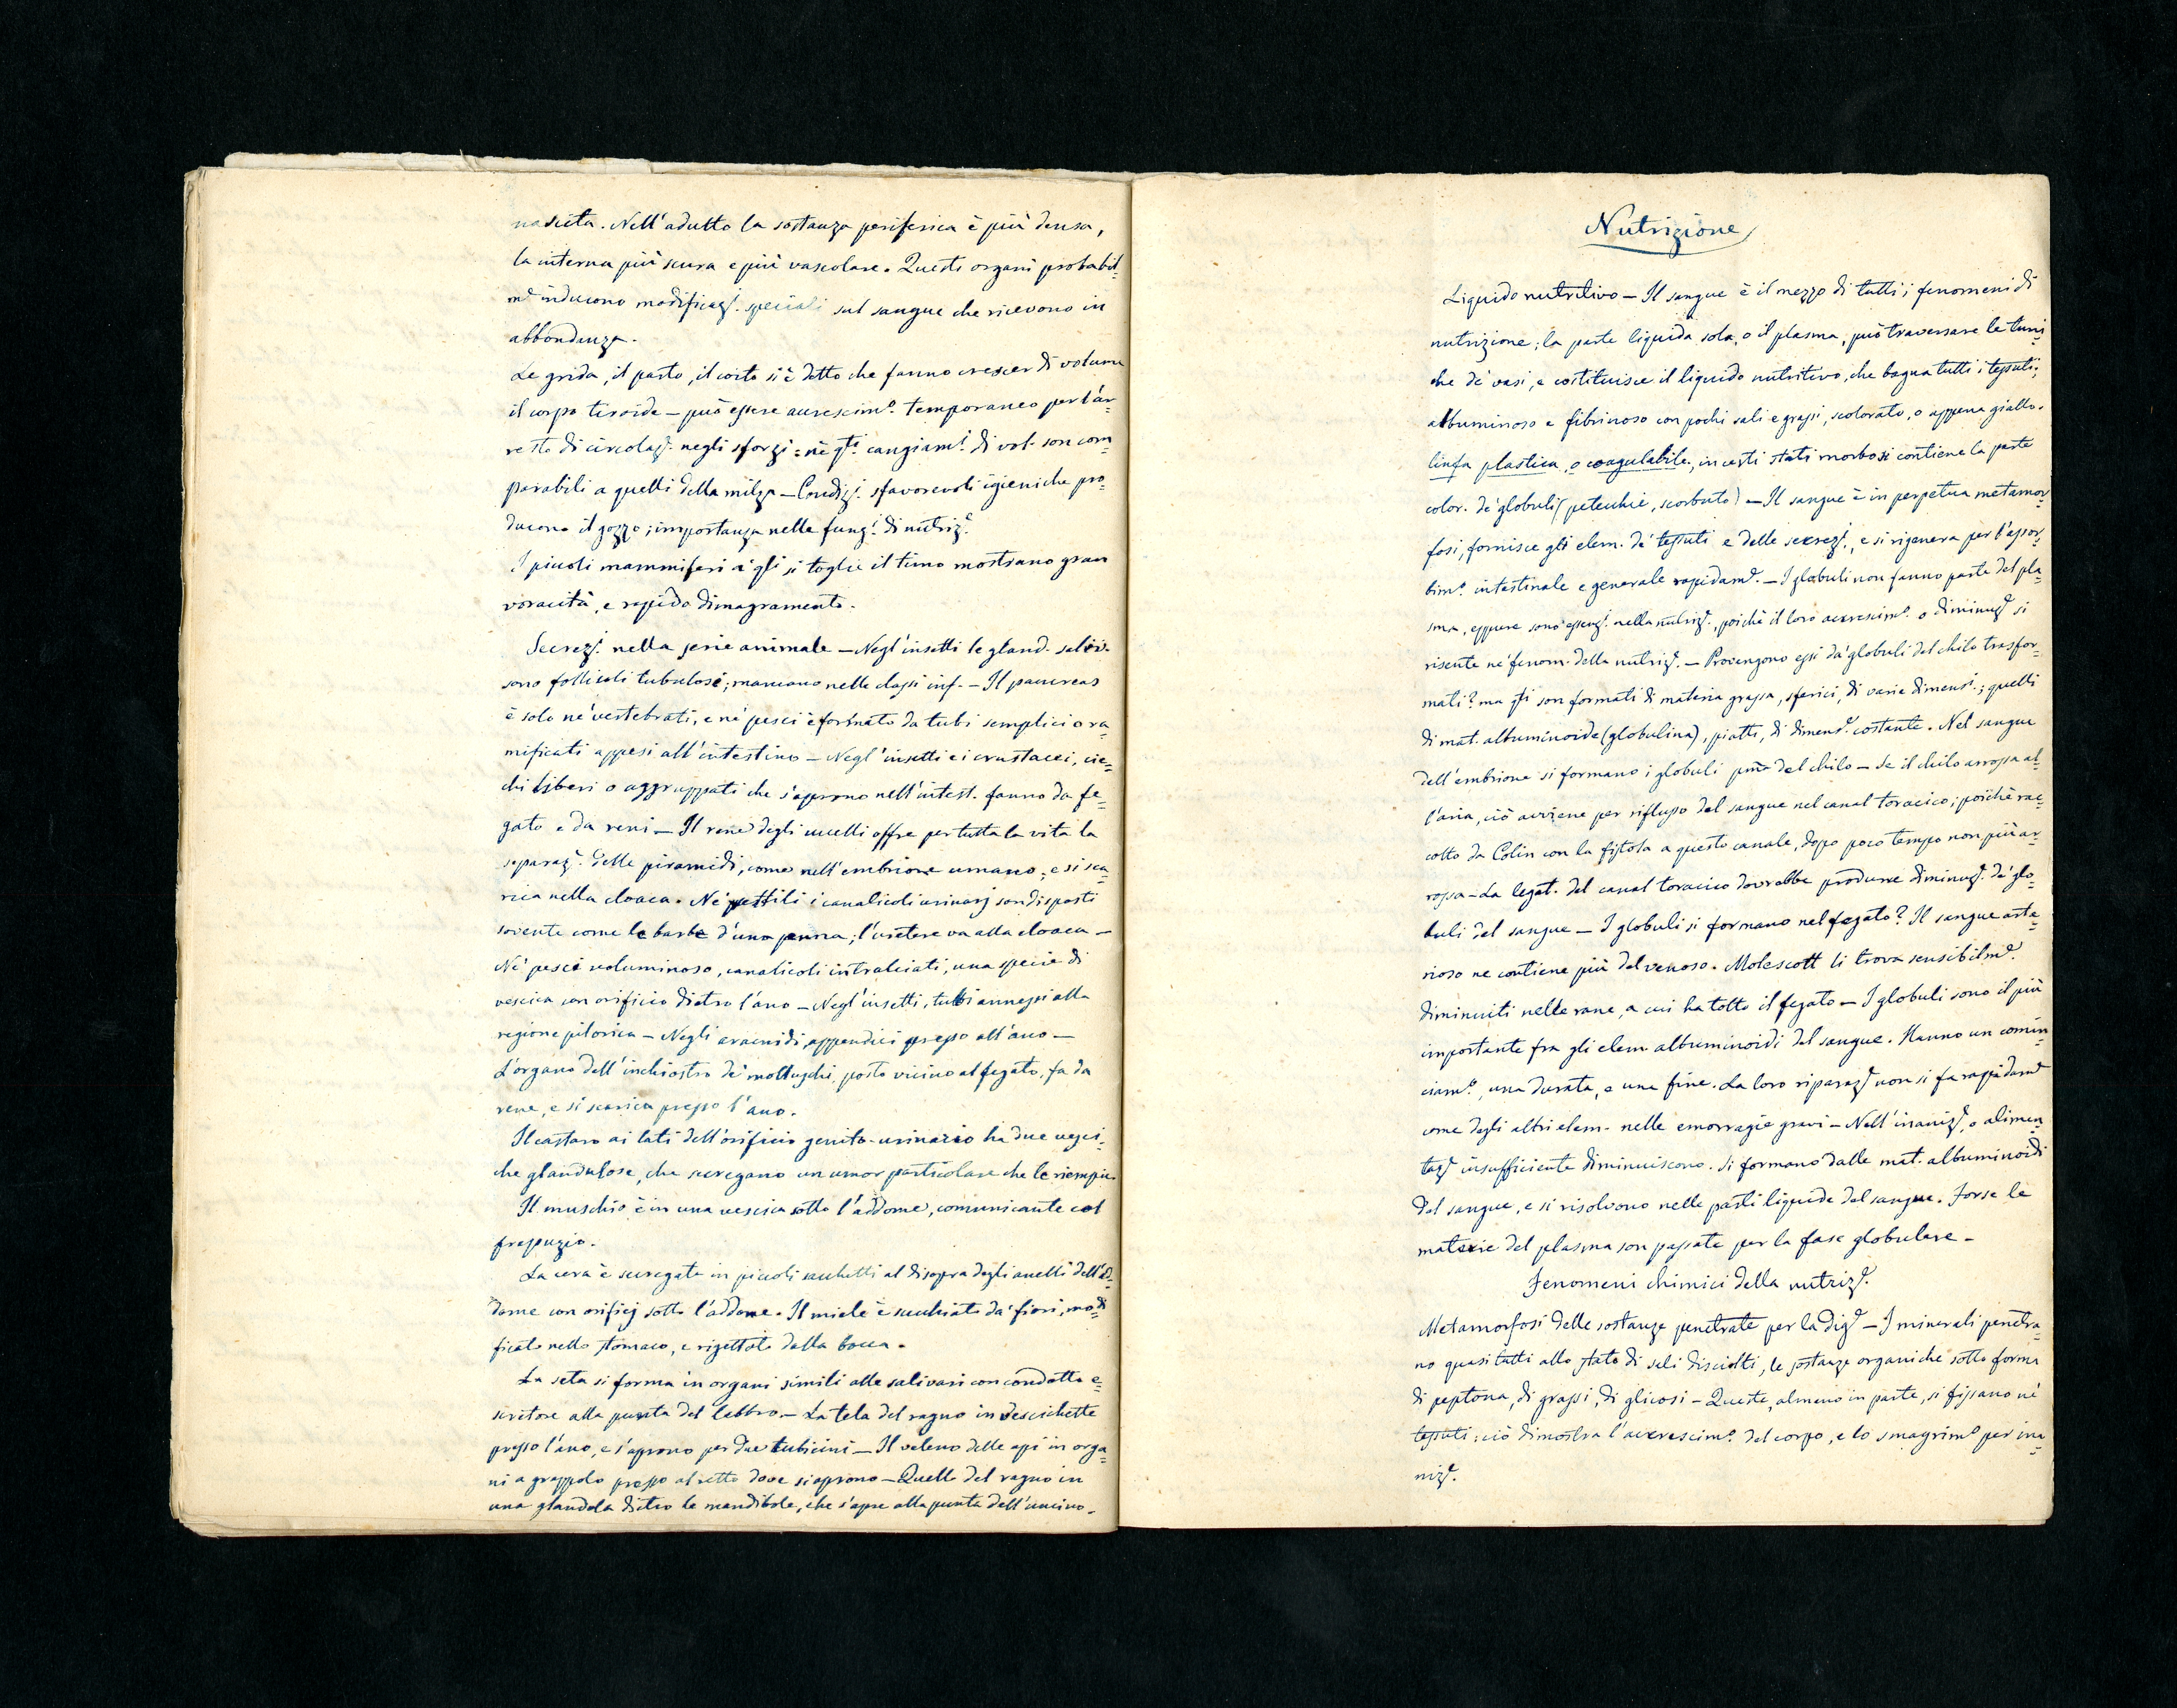 nascita. Nell'adulto la sostanza periferica è più densa,
la interna più scura e più vascolare. Questi organi probabil=
m.e inducono modificaz.i speciali sul sangue che ricevono in
abbondanza.
Le grida, il parto, il coito si è detto che fanno crescer di volume
il corpo tiroide — può essere accrescim.o temporaneo per l'ar=
resto di circolaz.e negli sforzi: nè q.ti cangiam.i di vol. son com=
parabili a quelli della milza — Condiz.i sfavorevoli igieniche pro=
ducono il gozzo; importanza nelle funz.i di nutriz.e
I piccoli mammiferi a' q.li si toglie il timo mostrano gran
voracità, e rapido dimagramento.
Secrez.i nella serie animale — Negl'insetti le gland. saliv.
sono follicoli tubulosi; mancano nelle classi inf. — Il pancreas
è solo ne' vertebrati, e ne' pesci è formato da tubi semplici o ra=
mificati appesi all'intestino — Negl'insetti e i crustacei, cie=
chi liberi o aggruppati che s'aprono nell'intest. fanno da fe=
gato e da reni — Il rene degli uccelli offre per tutta la vita la
separaz.e delle piramidi, come nell'embrione umano; e si sca=
rica nella cloaca. Ne' rettili i canalicoli urinarj son disposti
sovente come le barbe d'una penna; l'uretere va alla cloaca —
Ne' pesci voluminoso, canalicoli intralciati, una specie di
vescica con orificio dietro l'ano — Negl'insetti, tubi annessi alla
regione pilorica — Negli aracnidi, appendici presso all'ano —
L'organo dell'inchiostro de' molluschi, posto vicino al fegato, fa da
rene, e si scarica presso l'ano.
Il castoro ai lati dell'orificio genito-urinario ha due vesci=
che glandulose, che secregano un umor particolare che le riempie.
Il muschio è in una vescica sotto l'addome, comunicante col
prepuzio.
La cera è secregata in piccoli sacchetti al disopra degli anelli dell'ad=
dome con orificj sotto l'addome. Il miele è succhiato da' fiori, modi=
ficato nello stomaco, e rigettato dalla bocca.
La seta si forma in organi simili alle salivari con condotto e=
scretore alla punta del labbro. — La tela del ragno in vescichette
presso l'ano, e s'aprono per due tubicini — Il veleno delle api in orga=
ni a grappolo presso al retto dove si aprono — Quello del ragno in
una glandola dietro le mandibole, che s'apre alla punta dell'uncino.
Nutrizione
Liquido nutritivo — Il sangue è il mezzo di tutti i fenomeni di
nutrizione; la parte liquida sola, o il plasma, può traversare le tuni=
che de' vasi, e costituisce il liquido nutritivo, che bagna tutti i tessuti;
albuminoso e fibrinoso con pochi sali e grassi, scolorato, o appena giallo.
linfa plastica, o coagulabile., in certi stati morbosi contiene la parte
color. de' globuli (petecchie, scorbuto) — Il sangue è in perpetua metamor=
fosi, fornisce gli elem. de' tessuti e delle secrez.i, e si rigenera per l'assor=
bim.o intestinale e generale rapidam.e — I globuli non fanno parte del pla=
sma, eppure sono essenz.i nella nutriz.e, poichè il loro accrescim.o o diminuz.e si
risente ne' fenom. della nutriz.e — Provengono essi da' globuli del chilo trasfor=
mati? ma q.ti son formati di materia grassa, sferici, di varie dimens.i; quelli
di mat. albuminoide (globulina), piatti, di dimens.e costante. Nel sangue
dell'embrione si formano i globuli pria del chilo — Se il chilo arrossa al=
l'aria, ciò avviene per riflusso del sangue nel canal toracico; poichè rac=
colto da Colin con la fistola a questo canale, dopo poco tempo non più ar=
rossa — La legat. del canal toracico dovrebbe produrre diminuz.e de' glo=
buli del sangue — I globuli si formano nel fegato? Il sangue arte=
rioso ne contiene più del venoso. Molescott li trova sensibilm.e
diminuiti nelle rane, a cui ha tolto il fegato — I globuli sono il più
importante fra gli elem. albuminoidi del sangue. Hanno un comin=
ciam.o, una durata, e una fine. La loro riparaz.e non si fa rapidam.e
come degli altri elem. nelle emorragie gravi — Nell'inaniz.e, o alimen=
taz.e insufficiente diminuiscono. Si formano dalle mat. albuminoidi
del sangue, e si risolvono nelle parti liquide del sangue. Forse le
materie del plasma son passate per la fase globulare —
Fenomeni chimici della nutriz.e
Metamorfosi delle sostanze penetrate per la dig.e — I minerali penetra=
no quasi tutti allo stato di sali disciolti, le sostanze organiche sotto forma
di peptona, di grassi, di glicosi — Queste, almeno in parte, si fissano ne'
tessuti; ciò dimostra l'accrescim.o del corpo, e lo smagrim.o per ina=
niz.e